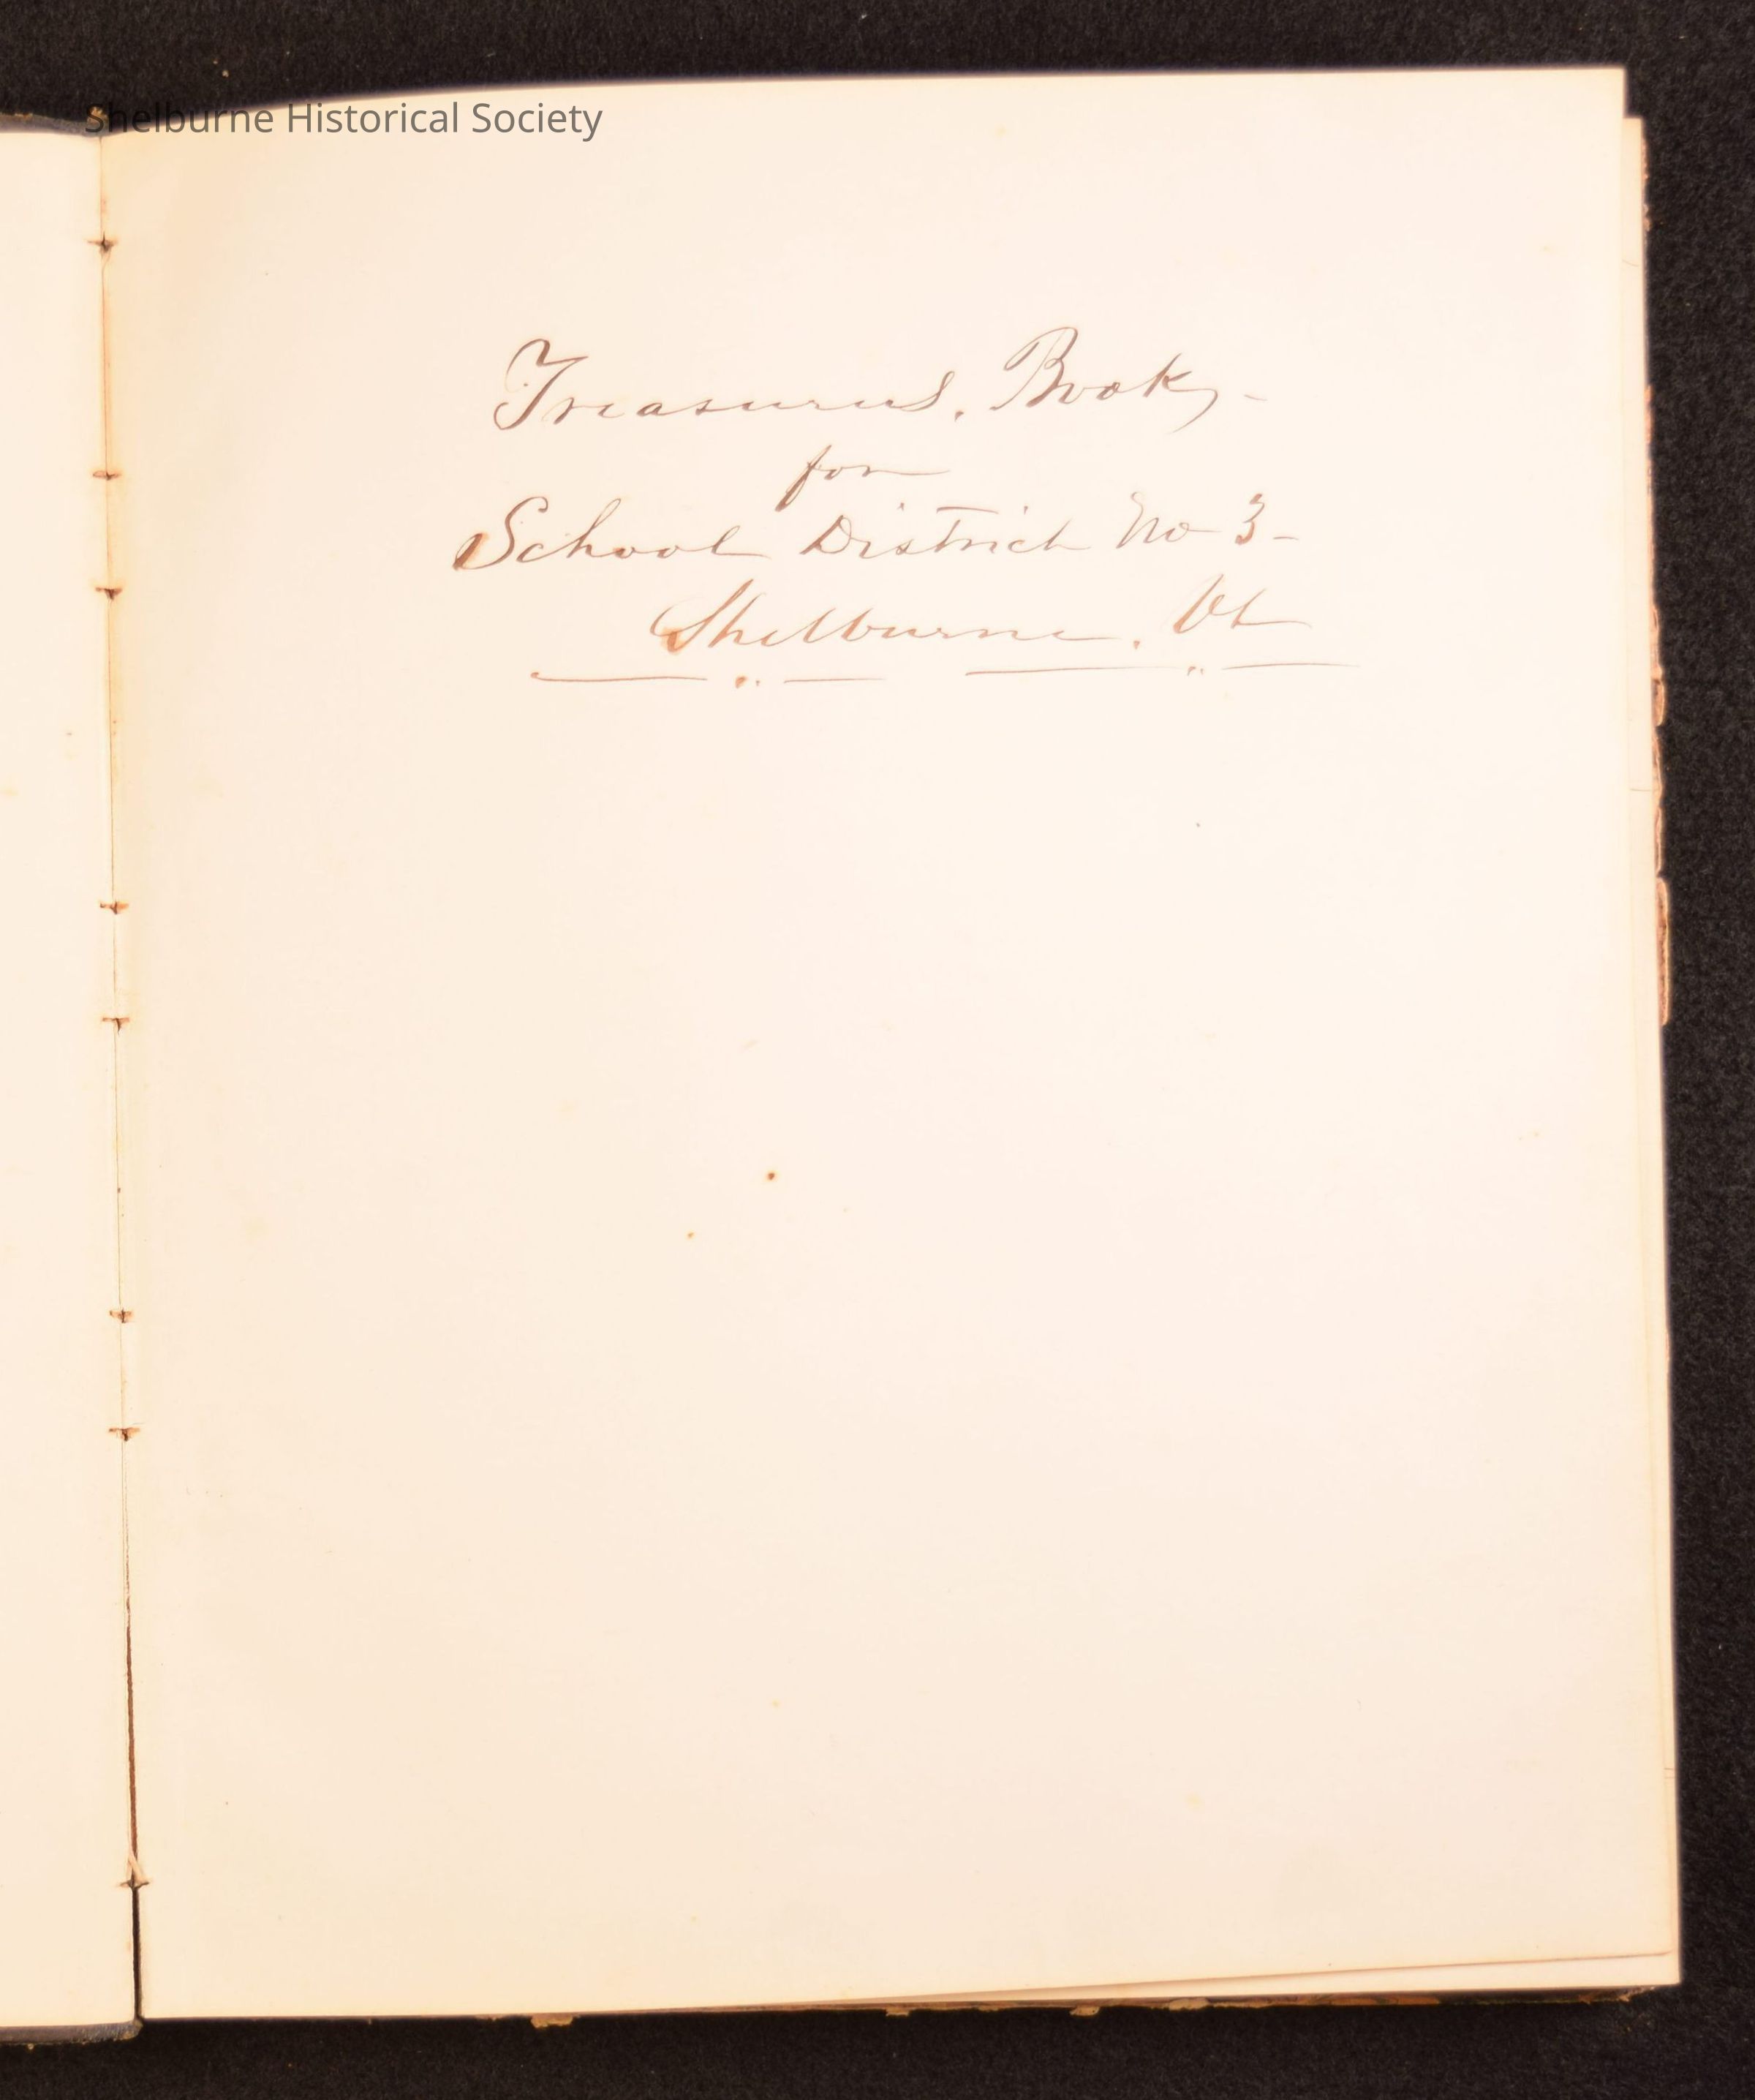 Shelburne Historical Society
Treasurers. Book -
for
School District No 3 -
Shelburne. Vt